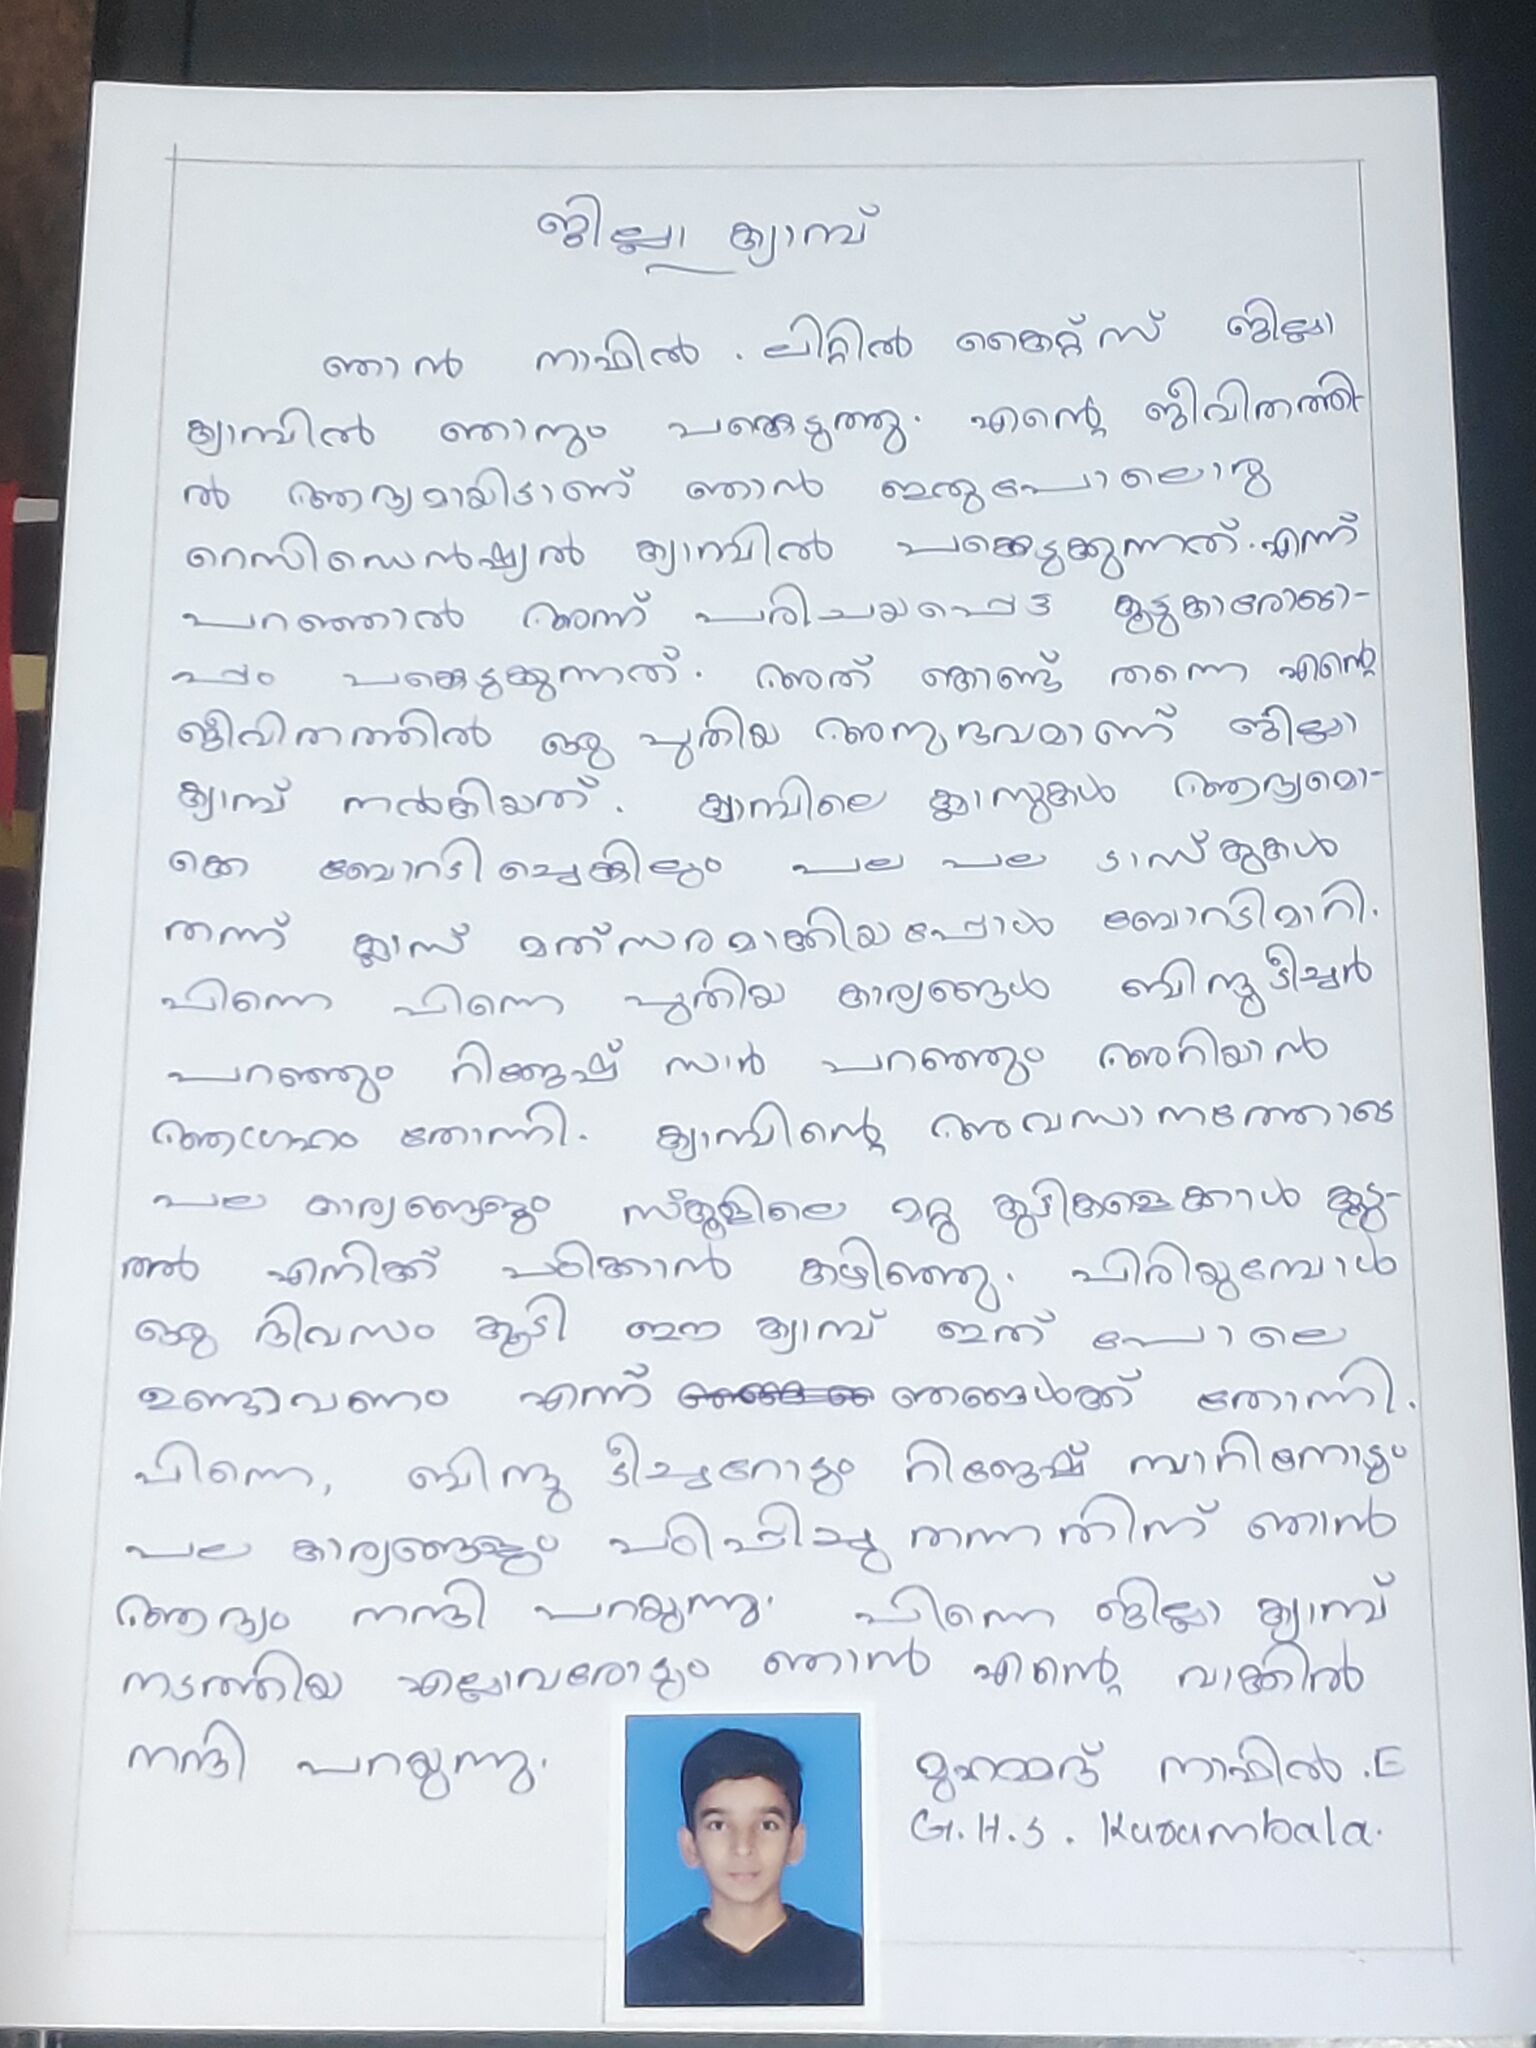 ജില്ലാ ക്യാമ്പ്
ഞാൻ നാഫിൽ. ലിറ്റിൽ കൈറ്റ്സ് ജില്ലാ
ക്യാമ്പിൽ ഞാനും പങ്കെടുത്തു. എന്റെ ജീവിതത്തി-
ൽ ആദ്യമായിടാണ് ഞാൻ ഇതുപോലൊരു
റെസിഡെൻഷ്യൽ ക്യാമ്പിൽ പങ്കെടുക്കുന്നത്. എന്ന്
പറഞ്ഞാൽ അന്ന് പരിചയപ്പെട്ട കൂട്ടുകാരോടൊ-
പ്പം പങ്കെടുക്കുന്നത്. അത് കൊണ്ട് തന്നെ എന്റെ
ജീവിതത്തിൽ ഒരു പുതിയ അനുഭവമാണ് ജില്ലാ
ക്യാമ്പ് നൽകിയത്. ക്യാമ്പിലെ ക്ലാസുകൾ ആദ്യമൊ-
ക്കെ ബോറടിച്ചെങ്കിലും പല പല ടാസ്കുകൾ
തന്ന് ക്ലാസ് മത്സരമാക്കിയപ്പോൾ ബോറടിമാറി.
പിന്നെ പിന്നെ പുതിയ കാര്യങ്ങൾ ബിന്ദുടീച്ചർ
പറഞ്ഞും റിജേഷ് സാർ പറഞ്ഞും അറിയാൻ
ആഗ്രഹം തോന്നി. ക്യാമ്പിന്റെ അവസാനത്തോടെ
പല കാര്യങ്ങളും സ്കൂളിലെ മറ്റു കുട്ടികളെക്കാൾ കൂടു-
തൽ എനിക്ക് പഠിക്കാൻ കഴിഞ്ഞു. പിരിയുമ്പോൾ
ഒരു ദിവസം കൂടി ഈ ക്യാമ്പ് ഇത് പോലെ
ഉണ്ടാവണം എന്ന് ഞങ്ങൾക്ക് തോന്നി.
പിന്നെ, ബിന്ദു ടീച്ചറോടും റിജേഷ് സാറിനോടും
പല കാര്യങ്ങളും പഠിപ്പിച്ചു തന്നതിന് ഞാൻ
ആദ്യം നന്ദി പറയുന്നു. പിന്നെ ജില്ലാ ക്യാമ്പ്
നടത്തിയ എല്ലാവരോടും ഞാൻ എന്റെ വാക്കിൽ
നന്ദി പറയുന്നു.
മുഹമ്മദ് നാഫിൽ. E
G.H.S. Kurumbala.